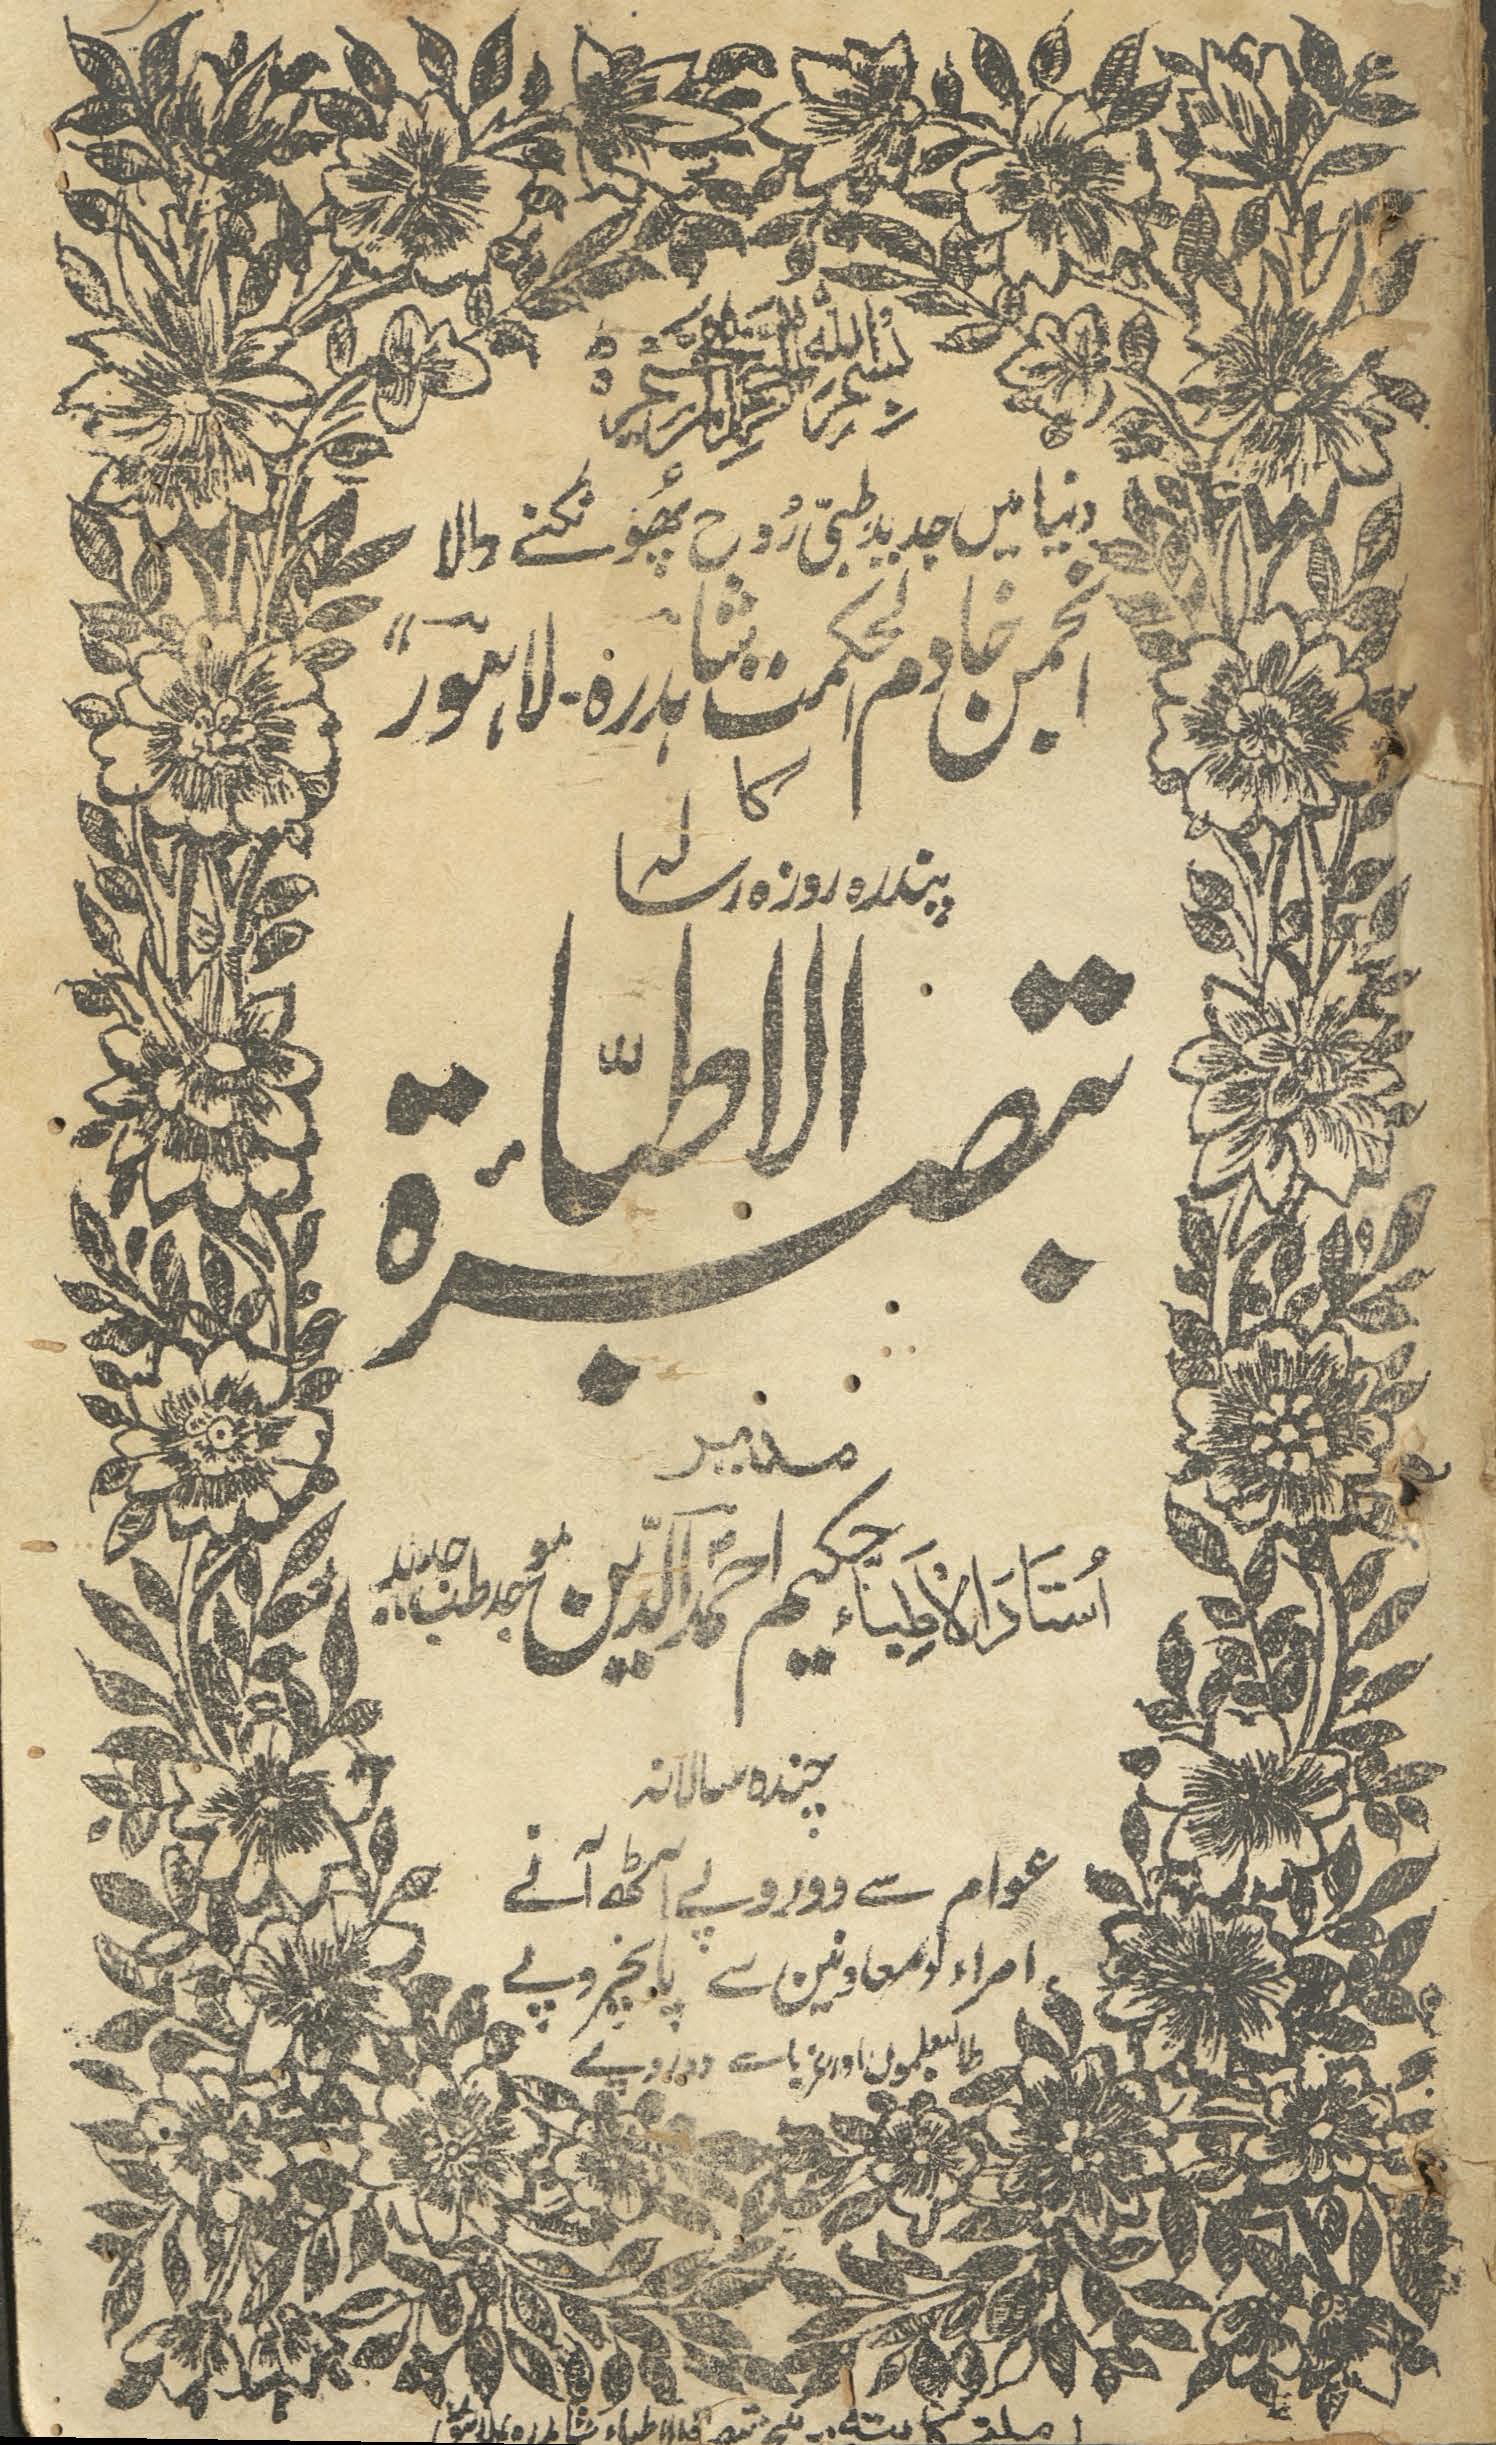 بسم اللہ الرحمن الرحیم
دنیا میں جدید طبّی رُوح پھُونکنے والا
انجمن خادم الحکمت شاہدرہ - لاہور"
کا
پندرہ روزہ رسالہ
تبصرۃ الاطبّاء
مدیر
اُستاذ الاطِبّاء حکیم احمد الدّین موجد طب جدید
چندہ سالانہ
عوام سے دو روپے آٹھ آنے
امراء و معاونین سے پانچ روپے
طالبعلموں اور غربا سے دو روپے
ملنے کا پتہ :- منیجر تبصرۃ الاطباء شاہدرہ لاہور